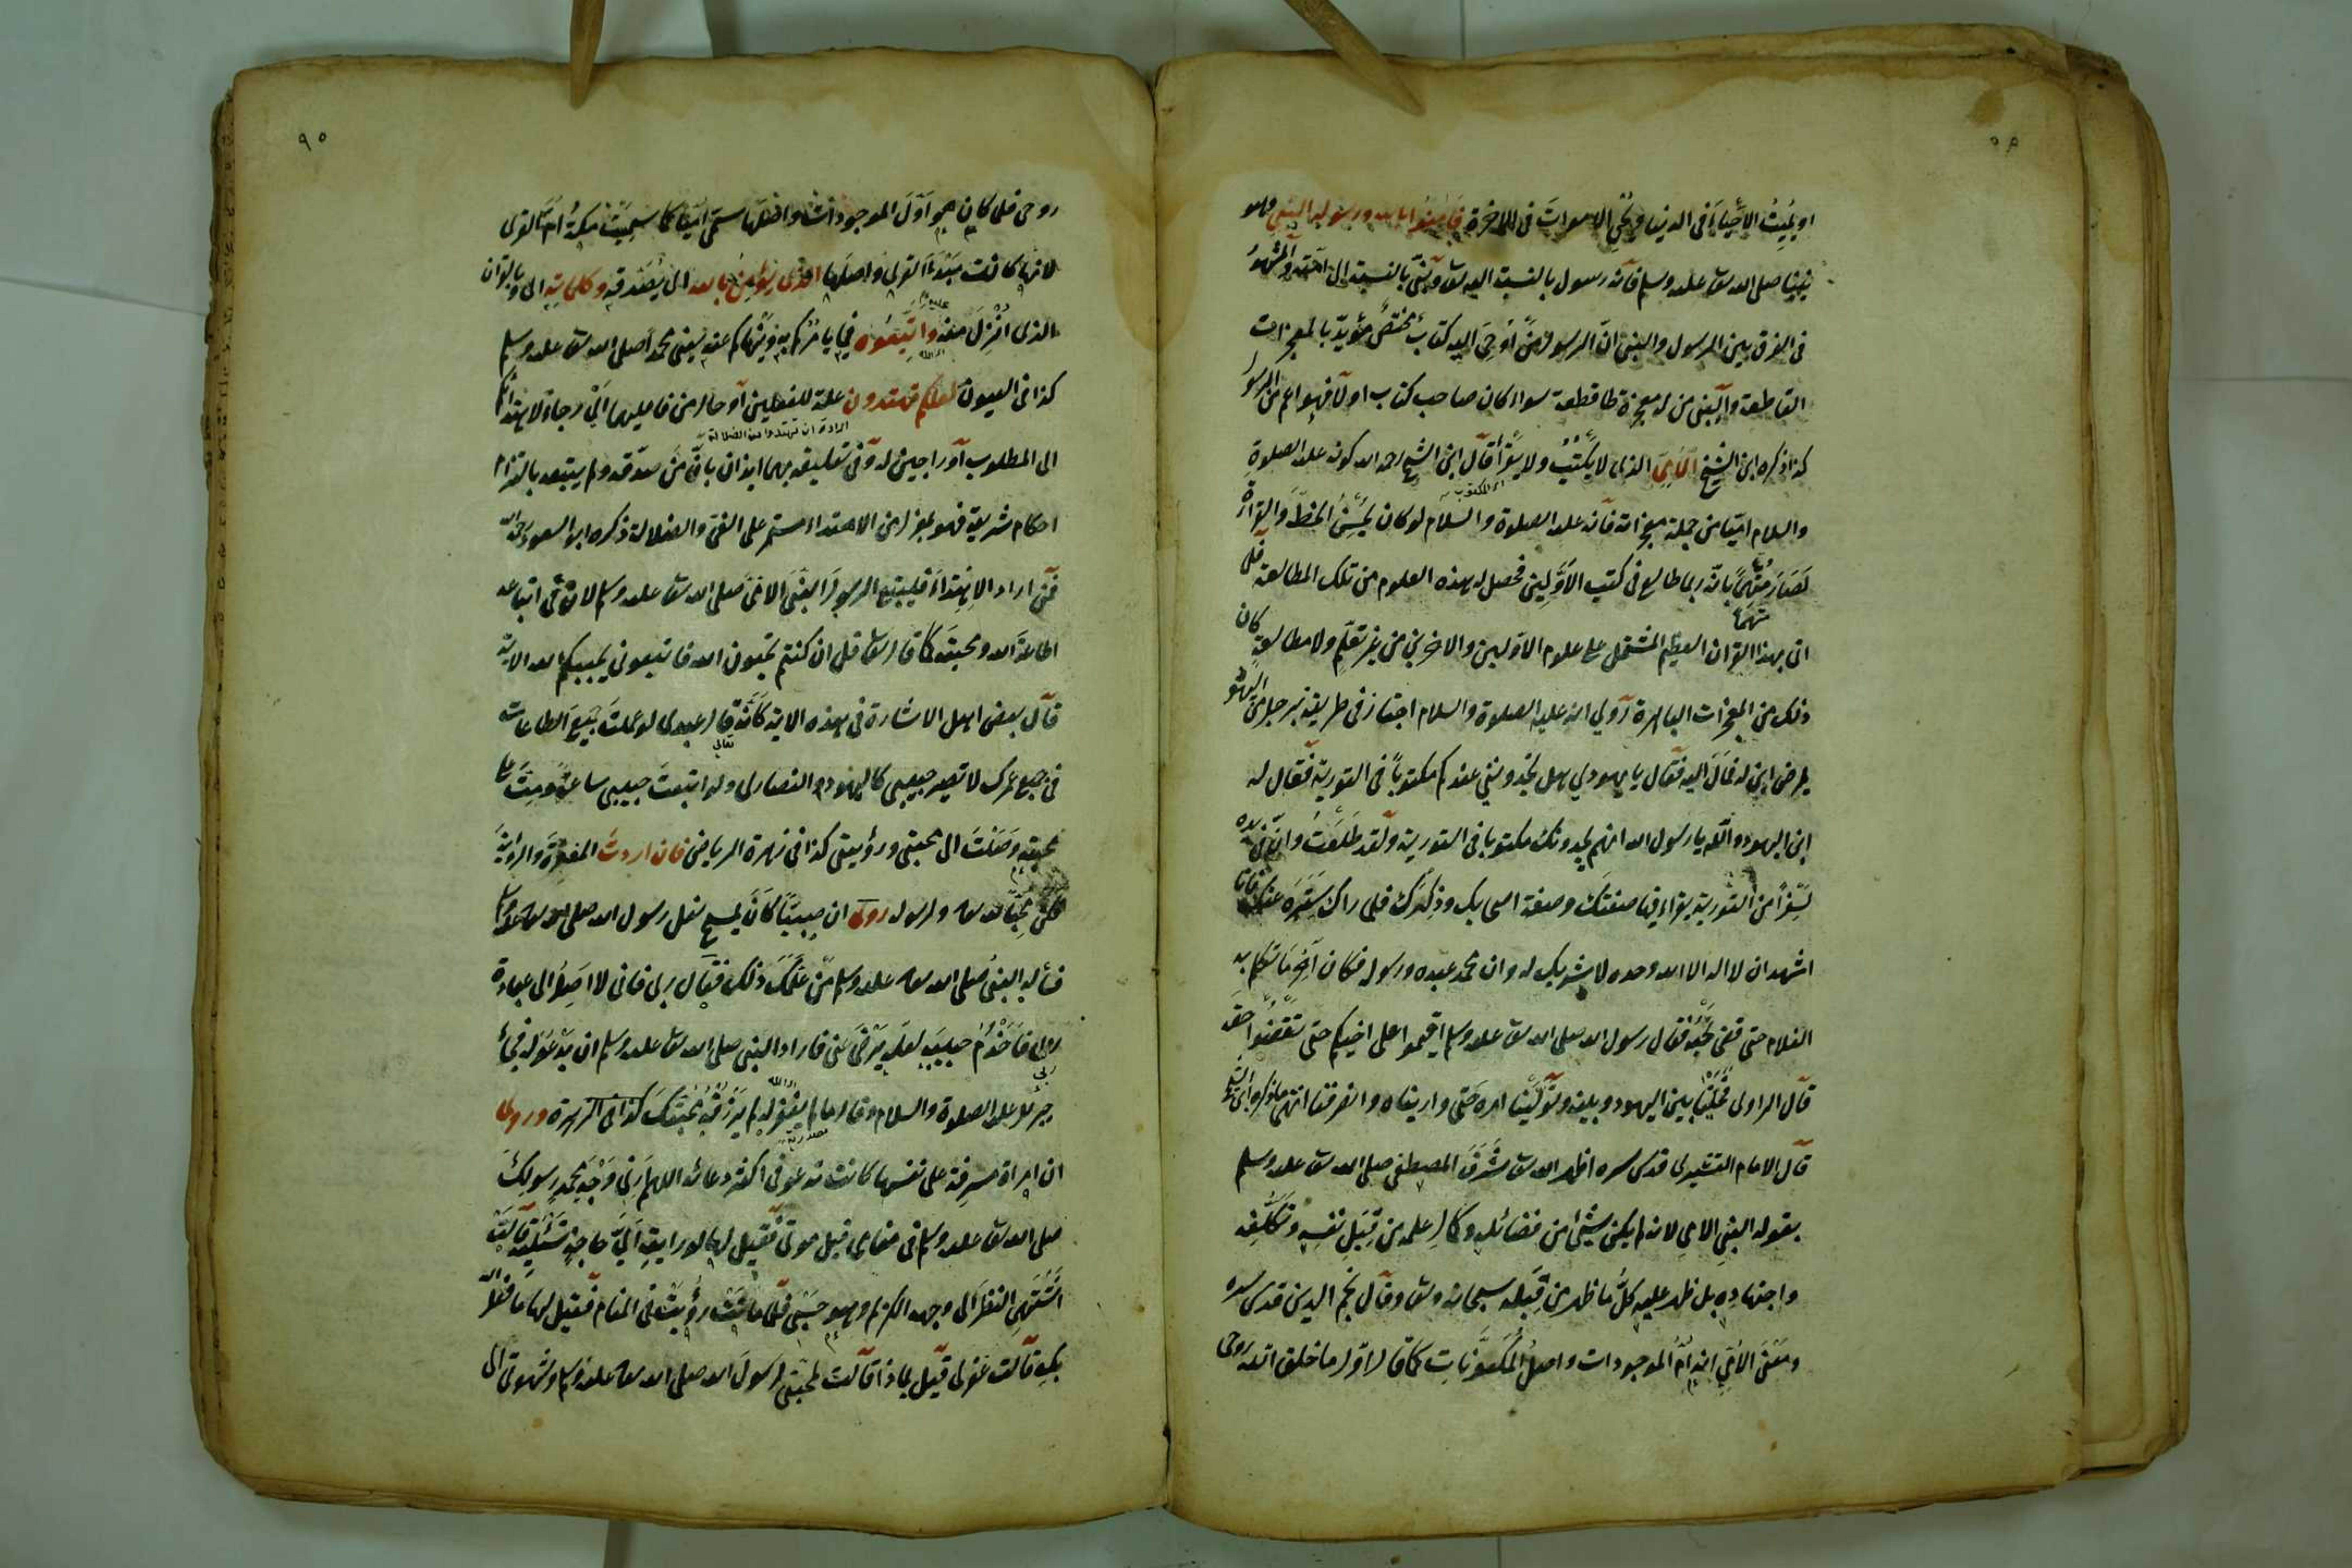 او يميت الاحياء في الدنيا ويحي الاموات في الاخرة فآمنوا بالله ورسوله النبي وهو
نبينا صلى الله تعا عليه وسلم فانه رسول بالنسبة اليه تعا ونبي بالنسبة الى امته والمشهور
في الفرق بين الرسول والنبي ان الرسول من اوحي اليه كتاب مختص مؤيد بالمعجزات
القاطعة والنبي من له معجزة قاطعة سواء كان صاحب كتاب اولا فهو اعم من الرسول
كذا ذكره ابن الشيخ الامي الذي لا يكتب ولا يقرأ قال ابن الشيخ رحمه الله كونه عليه الصلوة
والسلام اميا من جملة معجزاته فانه عليه الصلوة والسلام لو كان يحسن الخط والقراءة
لصار متهما بانه ربما طالع في كتب الاولين فحصل له هذه العلوم من تلك المطالعة فلما
اتى بهذا القرآن العظيم المشتمل على علوم الاولين والاخرين من غير تعلم ولا مطالعة كان
ذلك من المعجزات الباهرة روي انه عليه الصلوة والسلام اجتاز في طريقه برجل من اليهود
يمرض ابن له فمال اليه فقال يا يهودي هل تجدونني عندكم مكتوبا في التورية فقال له
ابن اليهودي والله يا رسول الله انهم يجدونك مكتوبا في التورية ولقد طلعت وان في يده
لسفرا من التورية يقراء فيها صفتك وصفة اصحابك وذكرك فلما راك ستره عنك فانا
اشهد ان لا اله الا الله وحده لا شريك له وان محمد عبده ورسوله فكان آخر ما تكلم به
الغلام حتى قضى نحبه فقال رسول الله صلى الله تعا عليه وسلم اقيموا على اخيكم حتى تقضوا حقه
قال الراوي فحلنا بين اليهود وبينه وتولينا امره حتى واريناه وانصرفنا انتهى ما ذكره ابن الشيخ
قال الامام القشيري قدس سره اظهر الله تعا شرف المصطفى صلى الله تعا عليه وسلم
بقوله النبي الامي لانه لم يكن شيئ من فضائله وكمال علمه من قبل نفسه وتكلفه
واجتهاده بل ظهر عليه كل ما ظهر من قبله سبحانه وتعا وقال نجم الدين قدس سره
ومعنى الامي انه ام الموجودات واصل المكونات كما قال اول ما خلق الله روحي
٩٠
روحي فلما كان هو اول الموجودات وافضلها سمى اميا كما سميت مكة ام القرى
لانها كانت مبدأ القرى واصلها الذي يؤمن بالله اي يصدقه وكلماته اي وبالقرآن
الذي انزل منه واتبعوه فيما يأمركم به وينهاكم عنه يعني محمدا صلى الله تعا عليه وسلم
كذا في العيون لعلكم تهتدون علة للفعلين او حال من فاعليهما اي رجاء لاهتدائكم
الى المطلوب او راجين له وفي تعليقه بهما ايذان بان من صدقه ولم يتبعه بالتزام
احكام شريعته فهو بمعزل من الاهتداء مستمر على الغي والضلالة ذكره ابو السعود رحمه الله
فمن اراد الاهتداء فليتبع الرسول النبي الامي صلى الله تعا عليه وسلم لان في اتباعه
اطاعة الله ومحبته كما قال تعا قل ان كنتم تحبون الله فاتبعوني يحببكم الله الاية
قال بعض اهل الاشارة في هذه الاية كأنه تعالى قال عبدي لو عملت جميع الطاعات
في جميع عمرك لا تصير حبيبي كاليهود والنصارى ولو اتبعت حبيبي ساعة ومت على
محبته وصلت الى محبتي ورؤيتي كذا في زهرة الرياض فان اردت المغفرة والرؤية
فكن محبا لله تعا ولرسوله روي ان صبيا كان يمسح نعل رسول الله صلى الله تعا عليه وسلم
فسأله النبي صلى الله تعا عليه وسلم من علمك ذلك فقال ربي فاني لا اصل الى عبادة
ربي فاخدم حبيبه لعله يرضى عني فاراد النبي صلى الله تعا عليه وسلم ان يدعو له فجاء
جبريل عليه الصلوة والسلام وقال ما لم يغفر له لم يرزقه محبتك كذا في الزهرة وروي
ان امرأة مسرفة على نفسها كانت تدعو في اكثر دعائه اللهم ارني وجه محمد رسولك
صلى الله تعا عليه وسلم في منامي قبل موتي فقيل لها لو رايته اي حاجة تسئليه قالت
اشتهي النظر الى وجهه الكريم وهو حسبي فلما ماتت رؤيت في المنام فقيل لها ما فعل الله
بك قالت غفر لي قيل بماذا قالت لمحبتي لرسول الله صلى الله تعا عليه وسلم وشهوتي الى